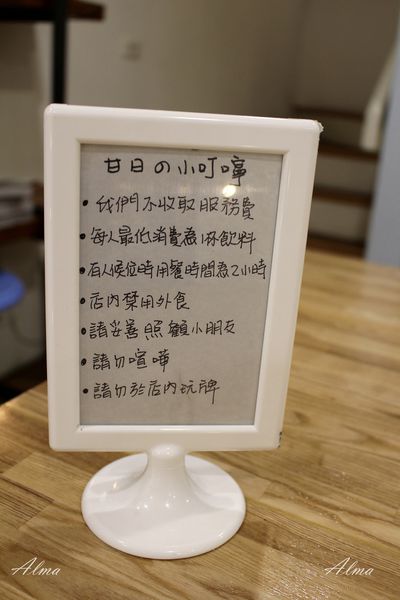 廿日の小叮嚀
•我們不收取服務費
•每人最低消費為1杯飲料
•有人候位時用餐時間為2小時
•店內禁用外食
•請妥善照顧小朋友
•請勿喧嘩
•請勿於店內玩牌
Alma
Alma